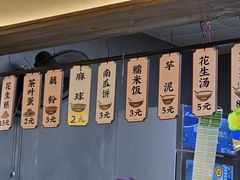 花生糕
3元
茶叶蛋
2元
藕粉
3元
麻球
2元
南瓜饼
3元
糯米饭
8元
芋泥
5元
花生汤
5元